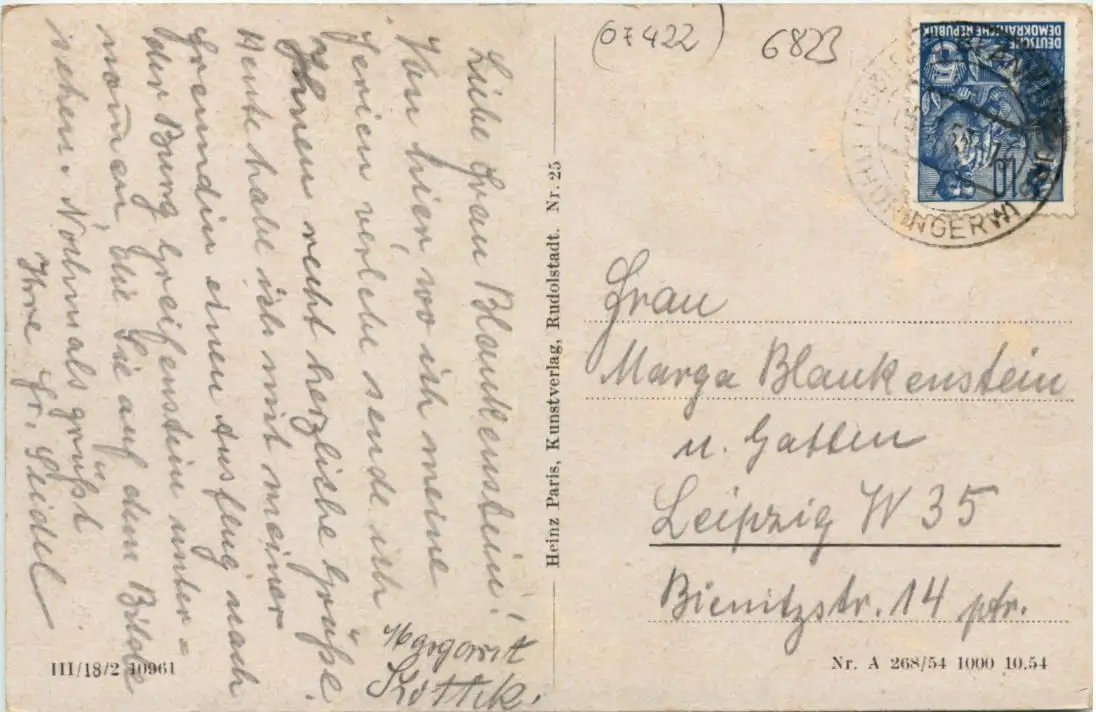 Liebe Frau Blankenstein!
Von hier, wo ich meine
Ferien verlebe sende ich
Ihnen recht herzliche Grüße.
Heute habe ich mit meiner
Freundin einen Ausflug nach
der Burg Greifenstein unter=
nom̄en, die Sie auf dem Bilde
sehen. Nochmals grüßt
Ihre Fr. Seidel
Margarit
Kottek.
III/18/2 10961
Heinz Paris, Kunstverlag, Rudolstadt. Nr. 25
(07422)
6823
DEUTSCHE
DEMOKRATISCHE REPUBLIK
10
THÜRINGERW
Frau
Marga Blankenstein
u. Gatten
Leipzig W 35
Bienitzstr. 14 ptr.
Nr. A 268/54 1000 10.54